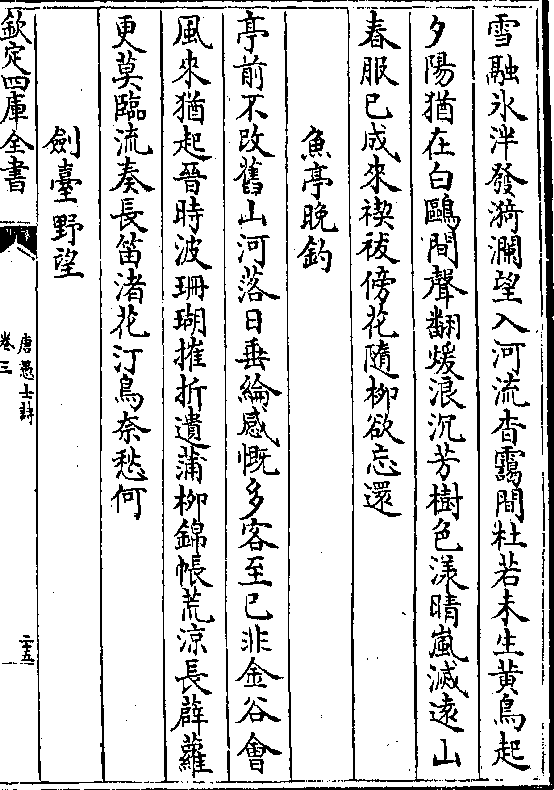 雪融氷泮發漪瀾望入河流杳靄間杜若未生黄鳥起
夕陽猶在白鷗間聲翻煖浪沉芳樹色漾晴嵐滅遠山
春服已成來禊祓傍花隨柳欲忘還
魚亭晚釣
亭前不改舊山河落日垂綸感慨多客至已非金谷會
風來猶起晉時波珊瑚摧折遺蒲柳錦帳荒涼長薜蘿
更莫臨流奏長笛渚花汀鳥奈愁何
劍臺野望
欽定四庫全書
唐愚士詩
卷三
二十五